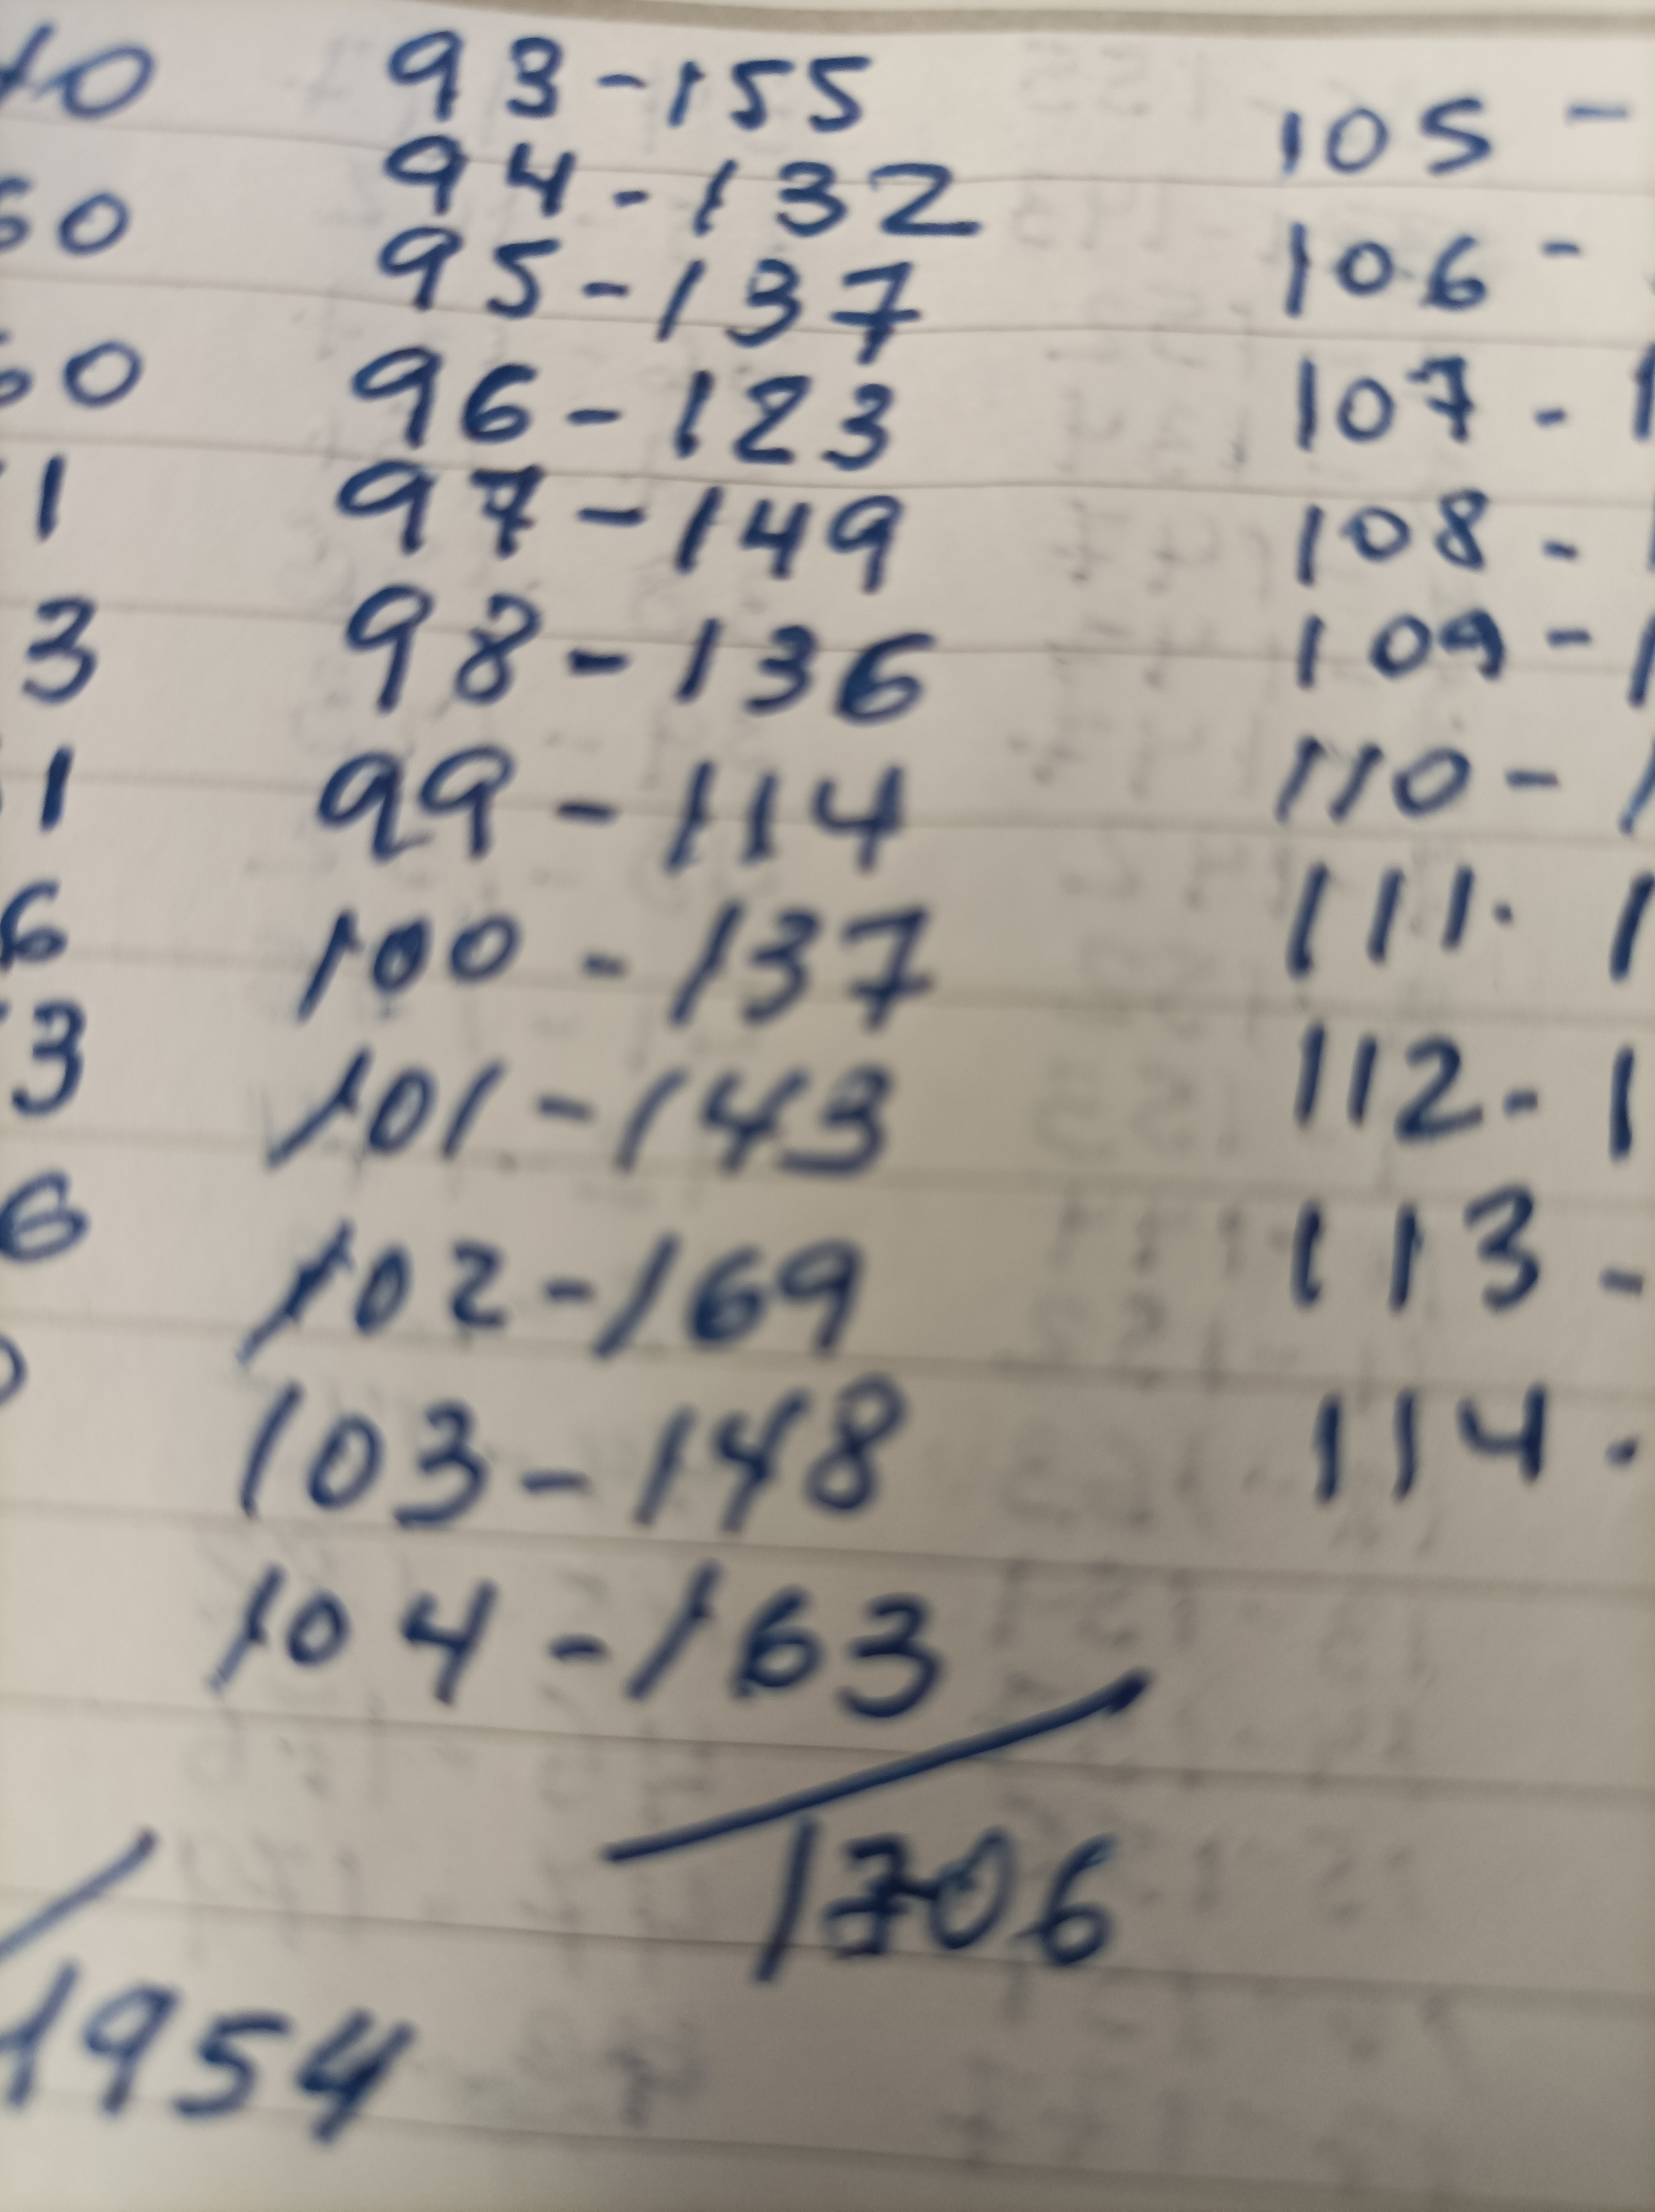 93-155
94-132
95-137
96-123
97-149
98-136
99-114
100-137
101-143
102-169
103-148
104-163
1706
1954
105 -
106 -
107 - 1
108 -
109 - 1
110 - 1
111. 1
112- 1
113 -
114.